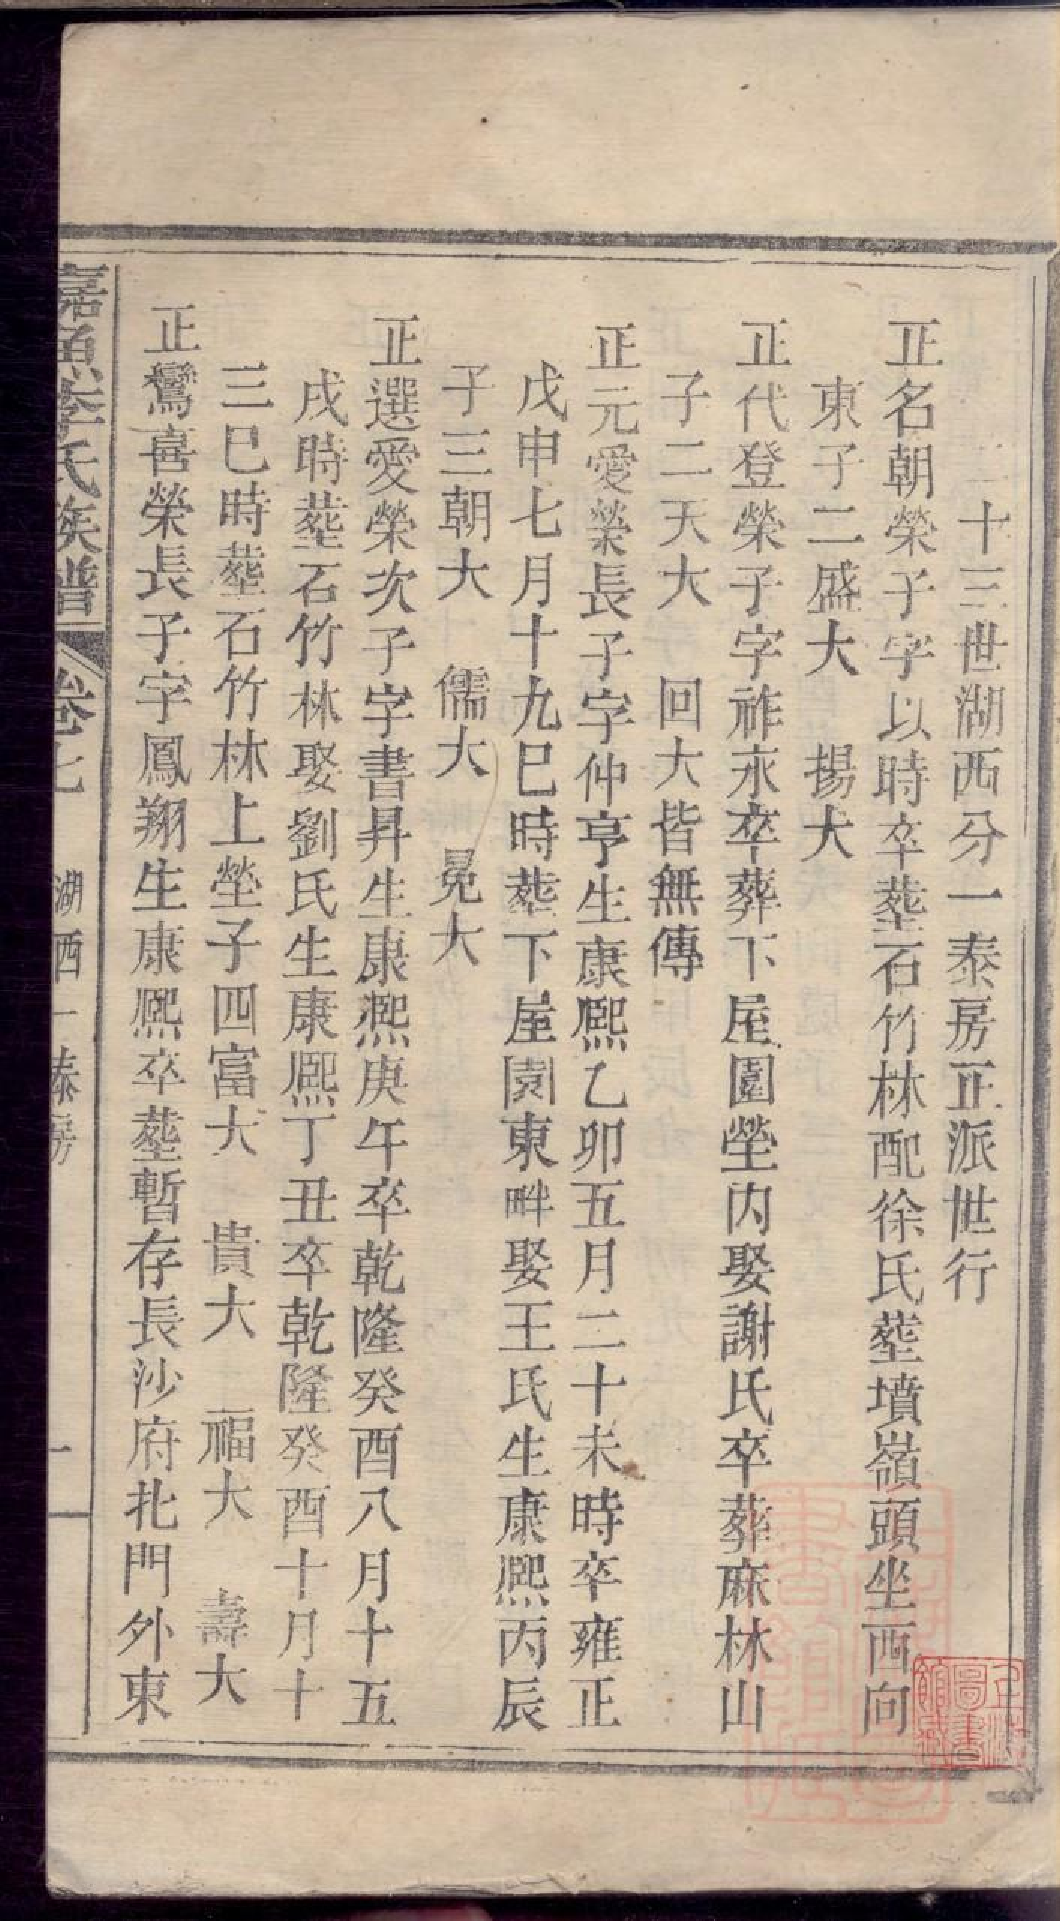 十三世湖西分一泰房正派世行
正名朝榮子字以時卒塟石竹林配徐氏塟墳嶺頭坐西向
東子二盛大　揚大
正代登榮子字祚永卒葬下屋園塋内娶謝氏卒葬麻林山
子二天大　回大皆無傳
正元愛榮長子字仲亨生康熈乙卯五月二十未時卒雍正
戊申七月十九巳時塟下屋園東畔娶王氏生康熈丙辰
子三朝大　儒大　冕大
正選愛榮次子字書昇生康熈庚午卒乾隆癸酉八月十五
戌時塟石竹林娶劉氏生康熈丁丑卒乾隆癸酉十月十
三巳時塟石竹林上塋子四富大　貴大　福大　壽大
正鸞喜榮長子字鳳翔生康熈卒塟暫存長沙府北門外東
嘉魚李氏族譜　卷七　湖西一泰房　一